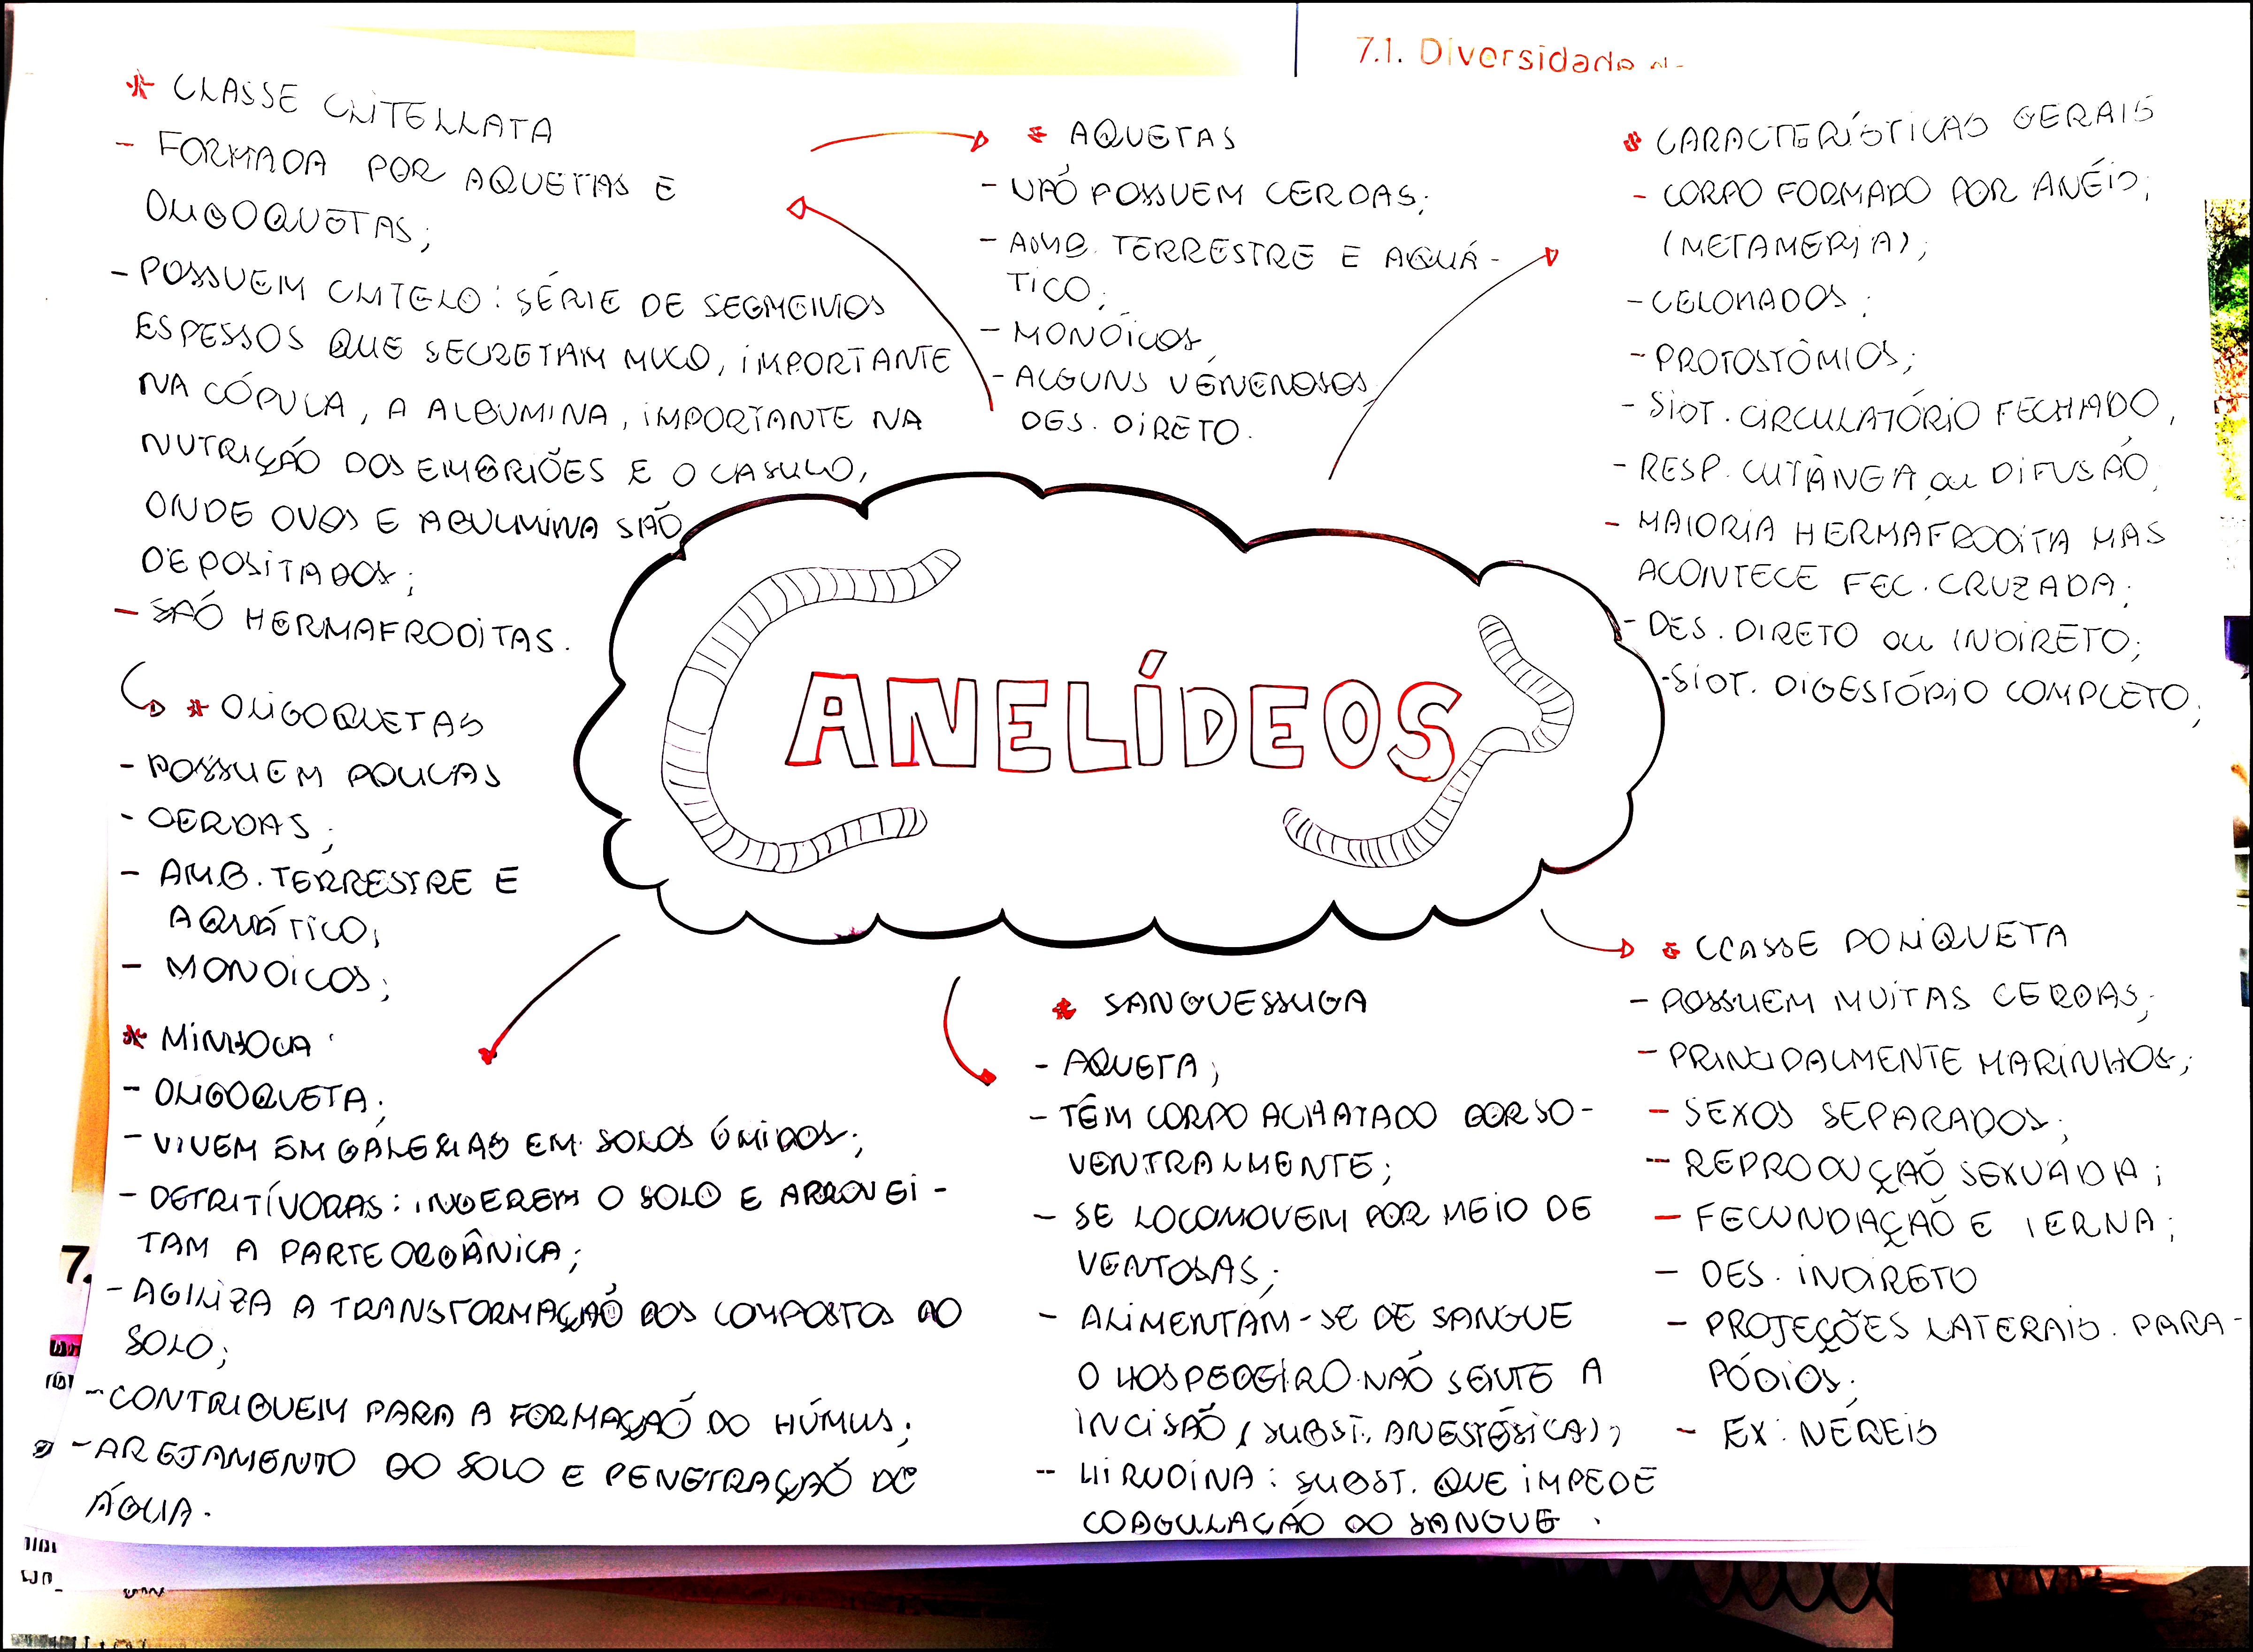 7.1. Diversidade
* CLASSE CLITELLATA
- FORMADA POR AQUETAS E
OLIGOQUETAS;
- POSSUEM CLITELO: SÉRIE DE SEGMENTOS
ESPESSOS QUE SECRETAM MUCO, IMPORTANTE
NA CÓPULA, A ALBUMINA, IMPORTANTE NA
NUTRIÇÃO DOS EMBRIÕES E O CASULO,
ONDE OVOS E ABULMINA SÃO
DEPOSITADOS;
- SÃO HERMAFRODITAS.
* OLIGOQUETAS
- POSSUEM POUCAS
- CERDAS;
- AMB. TERRESTRE E
AQUÁTICO;
- MONOICOS;
* MINHOCA:
- OLIGOQUETA;
- VIVEM EM GALERIAS EM SOLOS ÚMIDOS;
- DETRITÍVORAS: INGEREM O SOLO E APROVEI-
TAM A PARTE ORGÂNICA;
- AGILIZA A TRANSFORMAÇÃO DOS COMPOSTOS DO
SOLO;
- CONTRIBUEM PARA A FORMAÇÃO DO HÚMUS;
- AREJAMENTO DO SOLO E PENETRAÇÃO DE
ÁGUA.
* AQUETAS
- NÃO POSSUEM CERDAS;
- AMB. TERRESTRE E AQUÁ-
TICO;
- MONÓICOS
- ALGUNS VENENOSOS
DES. DIRETO.
ANELÍDEOS
* SANGUESSUGA
- AQUETA;
- TÊM CORPO ACHATADO DORSO-
VENTRALMENTE;
- SE LOCOMOVEM POR MEIO DE
VENTOSAS;
- ALIMENTAM-SE DE SANGUE
O HOSPEDEIRO NÃO SENTE A
INCISÃO (SUBST. ANESTÉSICA);
- HIRUDINA: SUBST. QUE IMPEDE
COAGULAÇÃO DO SANGUE.
* CARACTERÍSTICAS GERAIS
- CORPO FORMADO POR ANÉIS;
(METAMERIA);
- CELOMADOS;
- PROTOSTÔMIOS;
- SIST. CIRCULATÓRIO FECHADO,
- RESP. CUTÂNEA, ou DIFUSÃO,
- MAIORIA HERMAFRODITA MAS
ACONTECE FEC. CRUZADA;
- DES. DIRETO ou INDIRETO;
- SIST. DIGESTÓRIO COMPLETO;
* CLASSE POLIQUETA
- POSSUEM MUITAS CERDAS;
- PRINCIPALMENTE MARINHOS;
- SEXOS SEPARADOS;
- REPRODUÇÃO SEXUADA;
- FECUNDAÇÃO E TERNA;
- DES. INDIRETO
- PROJEÇÕES LATERAIS. PARA-
PÓDIOS;
- EX: NEREIS
7.